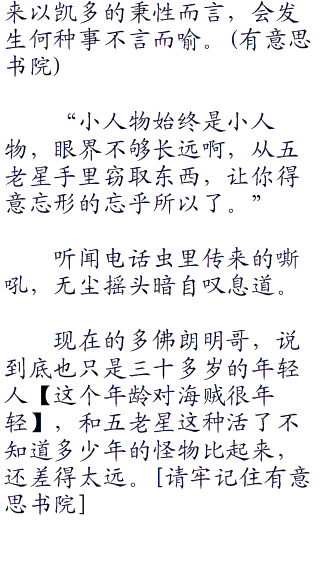 来以凯多的秉性而言，会发
生何种事不言而喻。(有意思
书院)
“小人物始终是小人
物，眼界不够长远啊，从五
老星手里窃取东西，让你得
意忘形的忘乎所以了。”
听闻电话虫里传来的嘶
吼，无尘摇头暗自叹息道。
现在的多佛朗明哥，说
到底也只是三十多岁的年轻
人【这个年龄对海贼很年
轻】，和五老星这种活了不
知道多少年的怪物比起来，
还差得太远。[请牢记住有意
思书院]